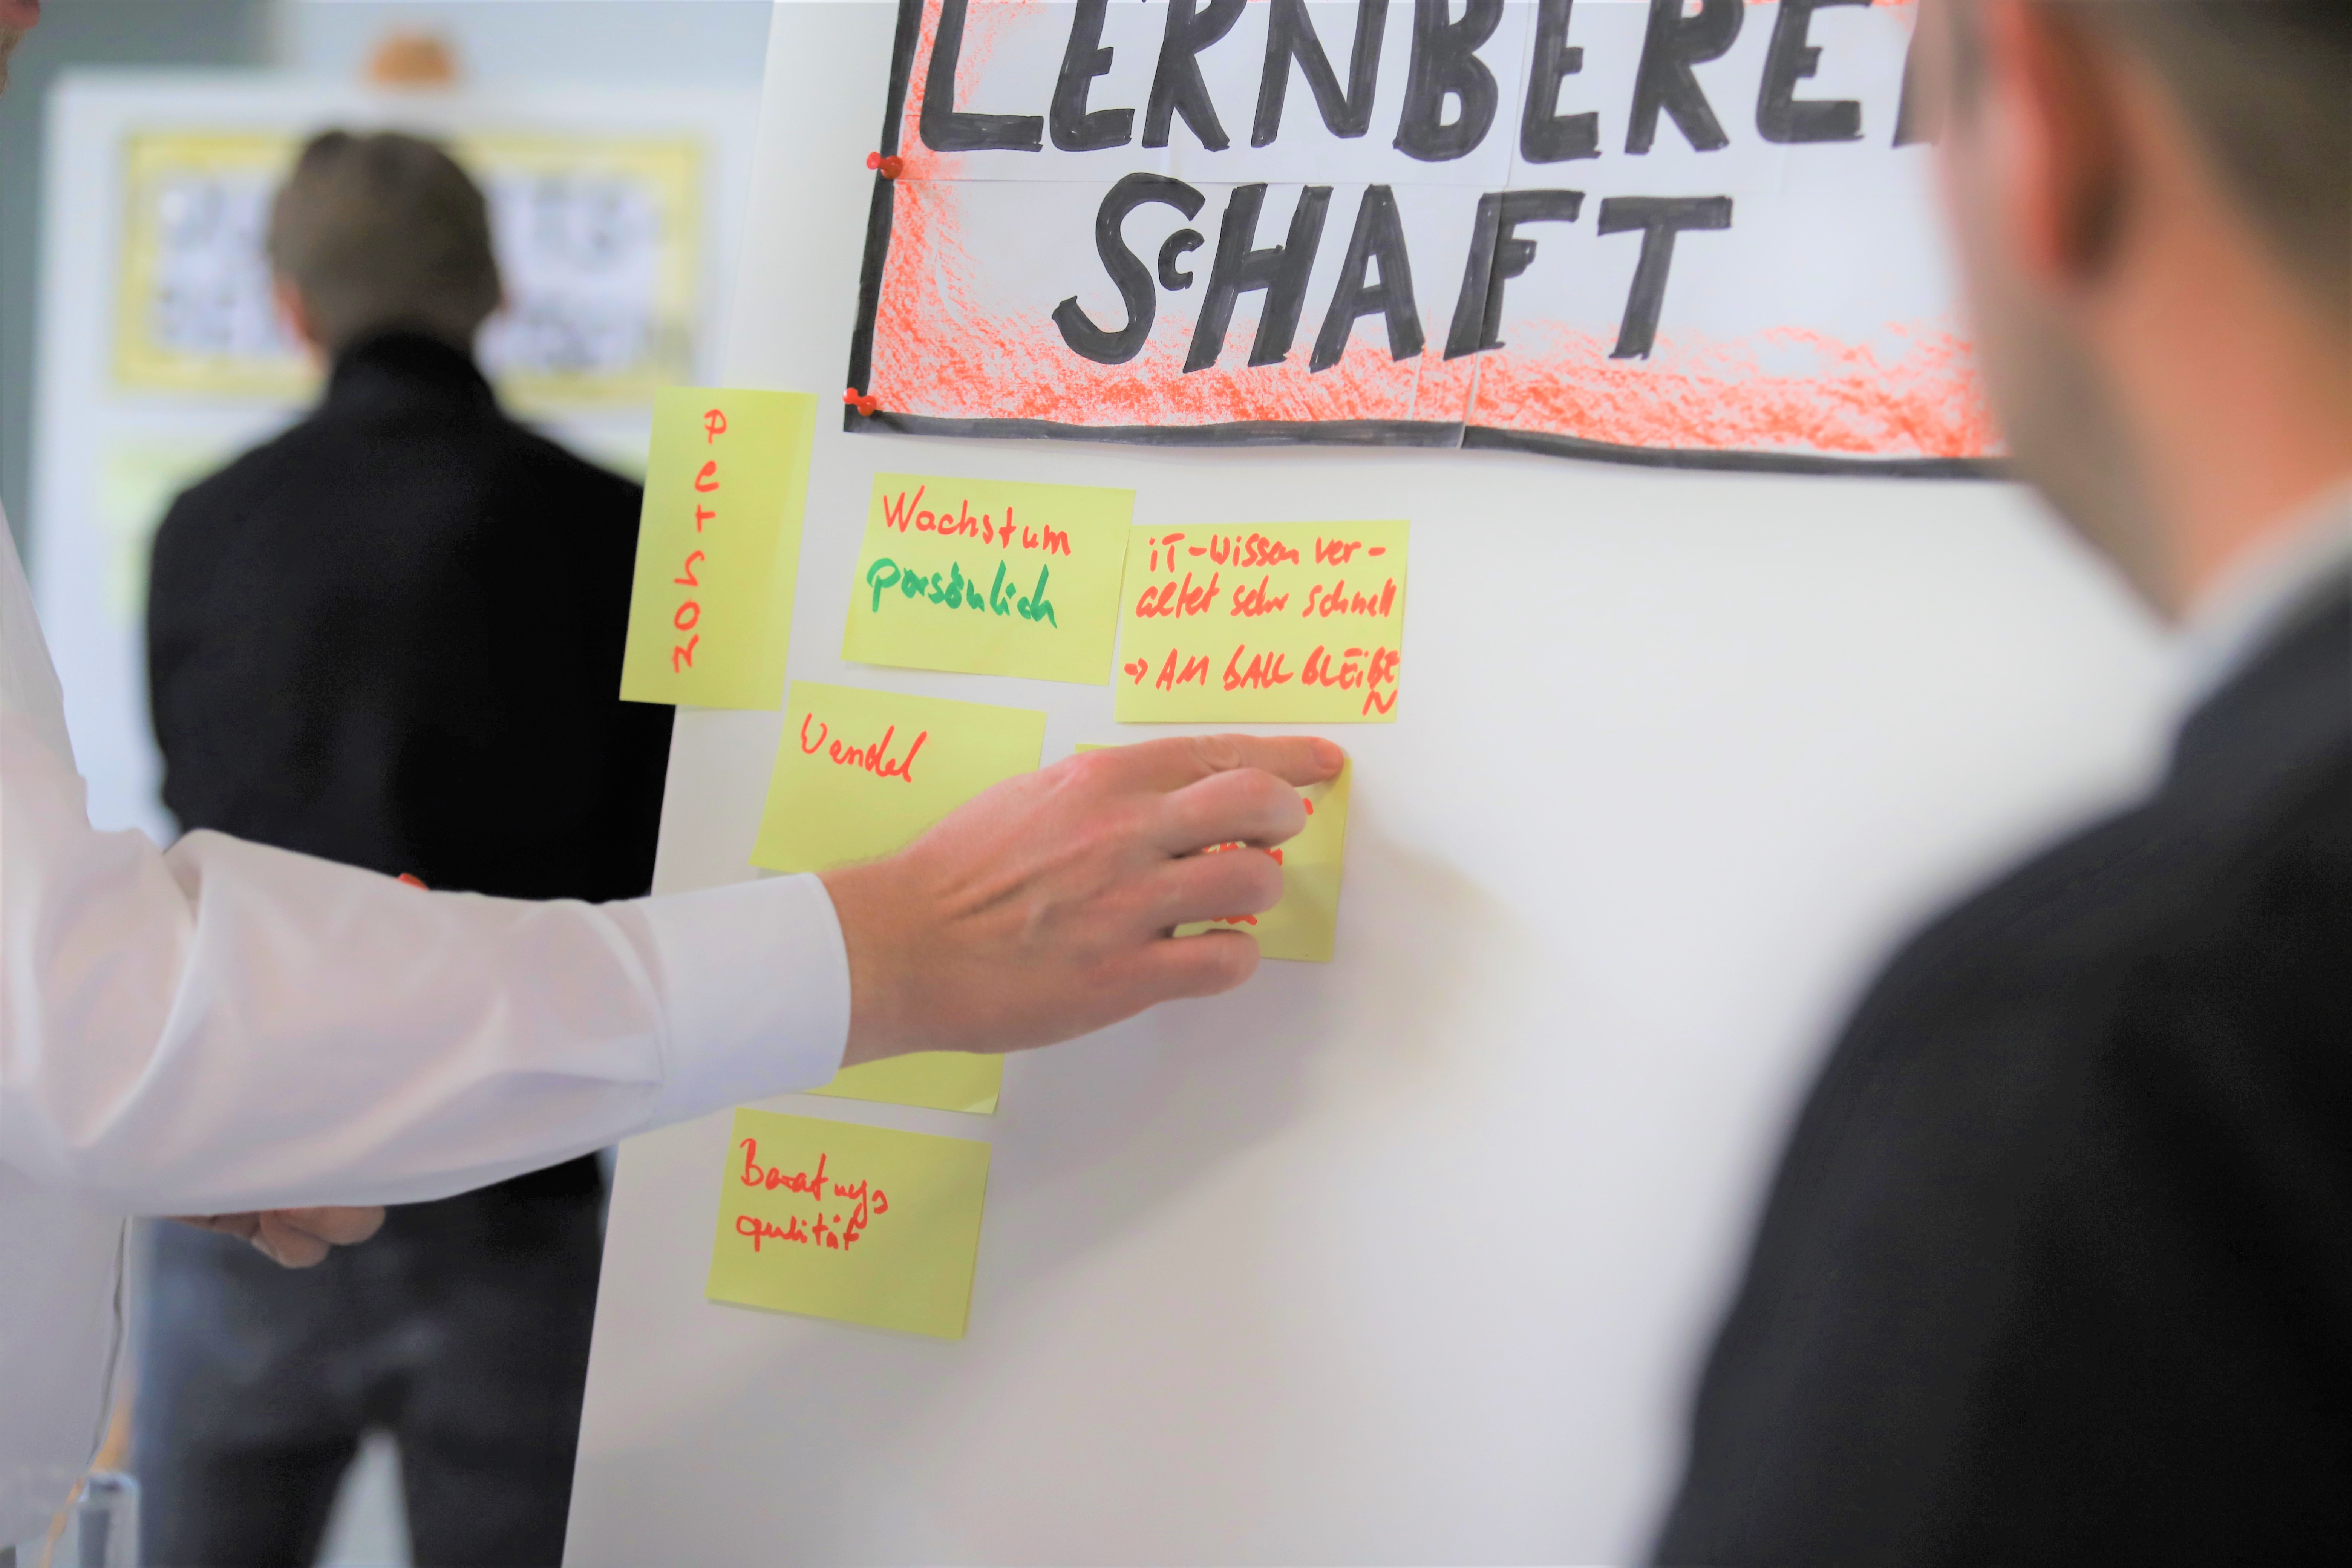 LERNBEREI
SCHAFT
Wachstum
persönlich
iT-Wissen ver-
altet sehr schnell
→ AM BALL BLEIBE
N
Wandel
Beratungs
qulität